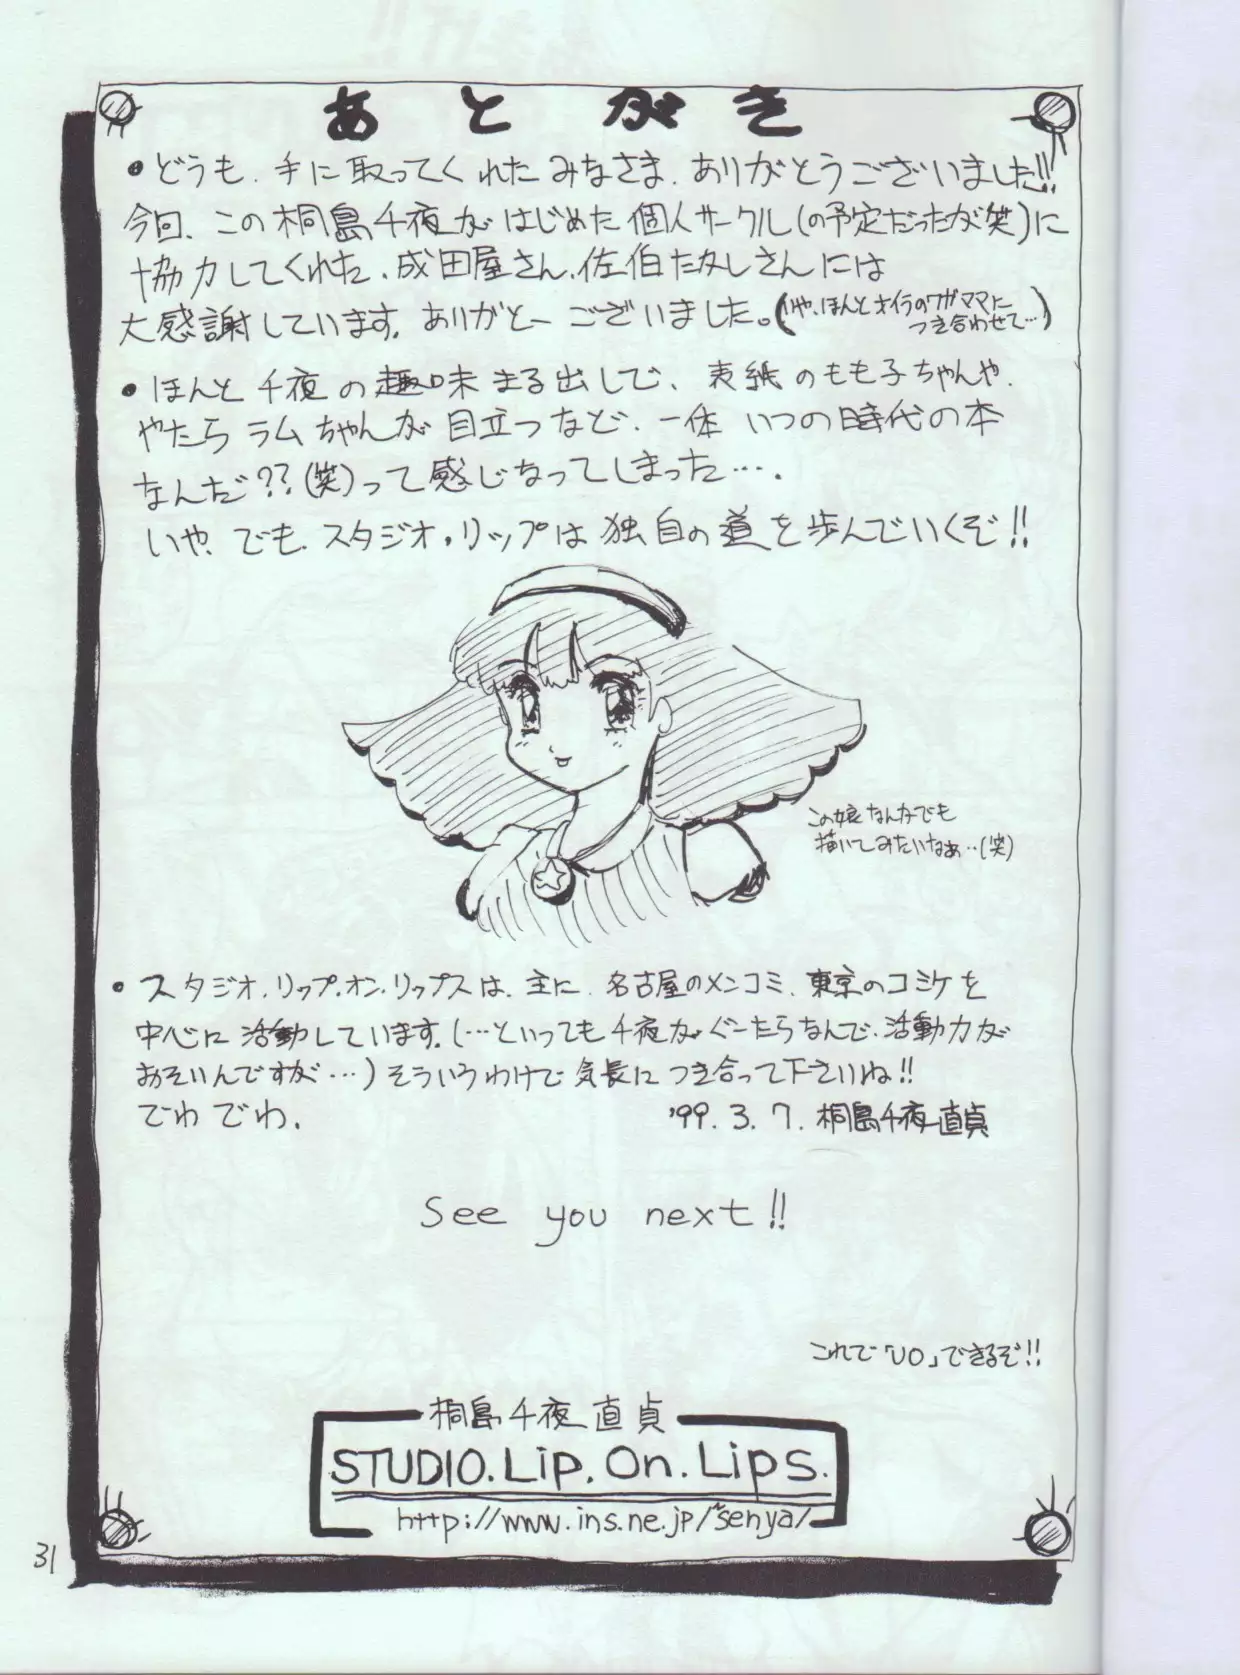 あとがき
・どうも、手に取ってくれたみなさま、ありがとうございました!!
今回、この桐島千夜がはじめた個人サークル(の予定だったが笑)に
協力してくれた、成田屋さん、佐伯たかしさんには
大感謝しています。ありがとーございました。(いや、ほんとオイラのワガママに
つき合わせて…)
・ほんと千夜の趣味まる出しで、表紙のもも子ちゃんや、
やたらラムちゃんが目立つなど、一体いつの時代の本
なんだ??(笑)って感じなってしまった…。
いや、でも、スタジオ・リップは独自の道を歩んでいくぞ!!
この娘なんかでも
描いてみたいなぁ…(笑)
・スタジオ.リップ.オン.リップスは、主に、名古屋のメンコミ、東京のコミケを
中心に活動しています。(…といっても千夜がぐーたらなんで、活動力が
おそいんですが…)そういうわけで気長につき合って下さいね!!
でわでわ.
'99.3.7.桐島千夜直貞
See you next!!
これで「UO」できるぞ!!
桐島千夜直貞
STUDIO.Lip.On.Lips.
http://www.ins.ne.jp/~senya/
31